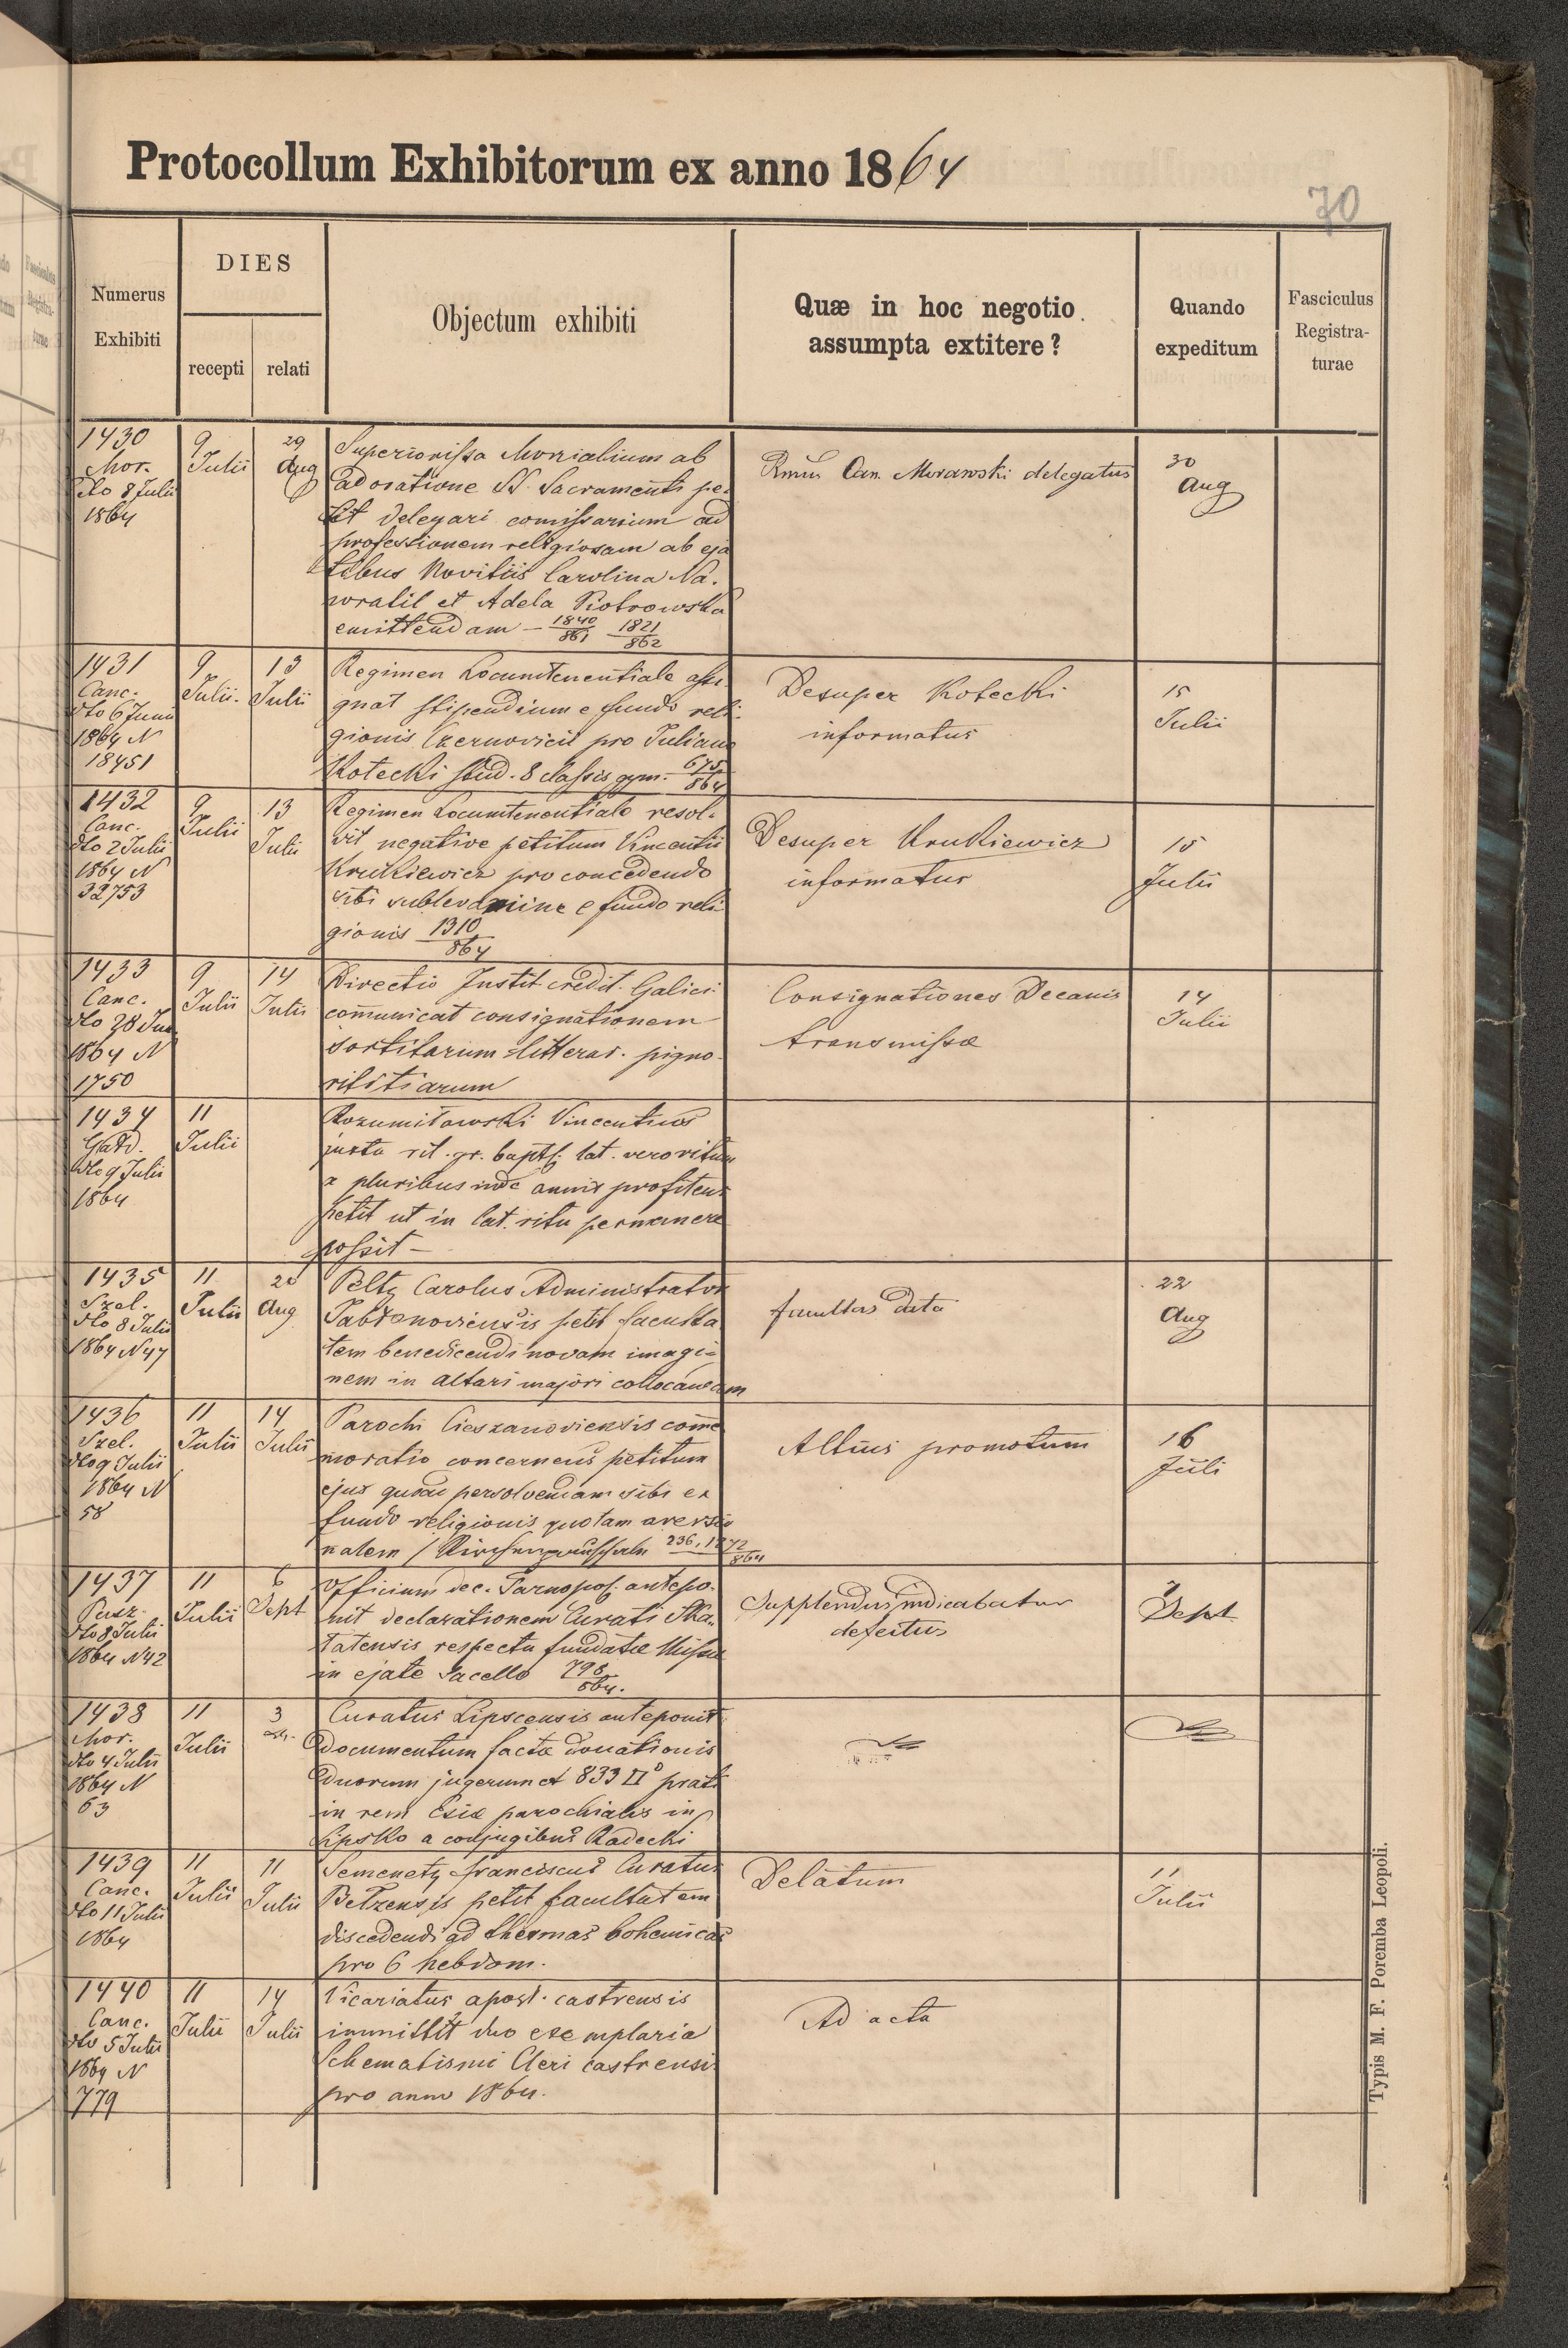 Protocollum Exhibitorum ex anno 1864
70
Numerus Exhibiti
DIES
recepti
relati
Objectum exhibiti
Quæ in hoc negotio assumpta extitere?
Quando expeditum
Fasciculus Registra-turae
1430
Mor.
dto 8 Julii
1864
9
Julii
29
Aug
Superiorissa Monialium ab
adoratione SS. Sacramenti pe-
tit delegari comissarium ad
professionem religiosam ab eja
tibus Novitiis Carolina Na-
wratil et Adela Piotrowska
emittendam - 1840/861 1821/862
Rmus Can. Morawski delegatus
30
Aug
1431
Canc.
dto 6 Junii
1864 N
18451
9
Julii.
13
Julii
Regimen Locumtenentiale assi-
gnat stipendium e fundo reli-
gionis Czernovicii pro Juliano
Kotecki stud. 8 classis gym. 675/864
Desuper Kotecki
informatus
15
Julii
1432
Canc.
dto 2 Julii
1864 N
32753
9
Julii
13
Julii
Regimen Locumtenentiale resol-
vit negative petitum Vincentii
Krukiewicz pro concedendo
sibi sublevamine e fundo reli
gionis 1310/864
Desuper Krukiewicz
informatus
15
Julii
1433
Canc.
dto 28 Jun
1864 N
1750
9
Julii
14
Julii
Directio Instit. credit. Galici
communicat consignationem
sortitarum litterar. pigno-
rititiarum
Consignationes Decanis
transmissæ
14
Julii
1434
Gatd.
dto 9 Julii
1864
11
Julii
Rozumiłowski Vincentius
juxta rit. gr. bapts. lat. vero ritum
a pluribus inde annis profitens
petit ut in lat. ritu permanere
possit -
1435
Szel.
dto 8 Julii
1864 N 47
11
Julii
20
Aug
Peltz Carolus Administrator
Jabłonoviensis petit faculta
tem benedicendi novam imagi-
nem in altari majori collocandam
facultas data
22
Aug
1436
Szel.
dto 9 Julii
1864 N
58
11
Julii
14
Julii
Parochi Cieszanoviensis comme
moratio concernens petitum
ejus quoad persolvendam sibi ex
fundo religionis quotam aversio
nalem / 236, 1272/864
Altius promotum
16
Juli
1437
Pusz.
dto 8 Julii
1864 N 42
11
Julii
6
Sept
Officium dec. Tarnopol. antepo-
nit declarationem Curati Ska-
łatensis respectu fundatæ Missæ
in ejate Sacello 798/864.
Supplendus indicabatur
defectus
7
Sept
1438
Mor.
dto 4 Julii
1864 N
63
11
Julii
3
Curatus Lipscensis anteponit
Documentum factæ donationis
duorum jugerum et 833 □° prati
in rem Ecsiæ parochialis in
Lipsko a conjugibus Radecki
1439
Canc.
dto 11 Julii
1864
11
Julii
11
Julii
Semenetz Franciscus Curatus
Bełzensis petit facultatem
discedendi ad thermas bohemicas
pro 6 hebdom.
Delatum
11
Julii
1440
Canc.
dto 5 Julii
1864 N
779
11
Julii
14
Julii
Vicariatus apost. castrensis
immittit duo exemplaria
Schematismi Cleri castrensi
pro anno 1864.
Ad acta
Typis M. F. Poremba Leopoli.